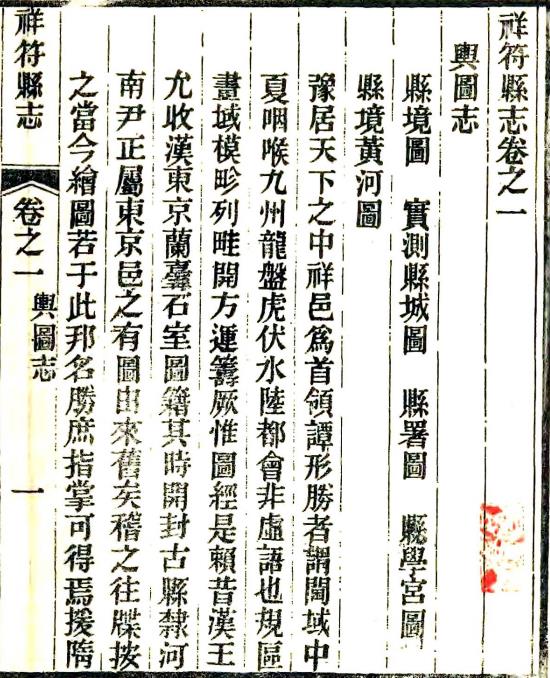 祥符縣志卷之一
輿圖志
縣境圖 實測縣城圖 縣署圖 縣學宮圖
縣境黃河圖
豫居天下之中祥邑爲首領譚形勝者謂閫域中
夏咽喉九州龍盤虎伏水陸都會非虛語也規區
畫域模畛列畦開方運籌厥惟圖經是賴昔漢王
允收漢東京蘭臺石室圖籍其時開封古縣隸河
南尹正屬東京邑之有圖由來舊矣稽之往牒按
之當今繪圖若于此邦名勝庶指掌可得焉援隋
祥符縣志 卷之一 輿圖志 一